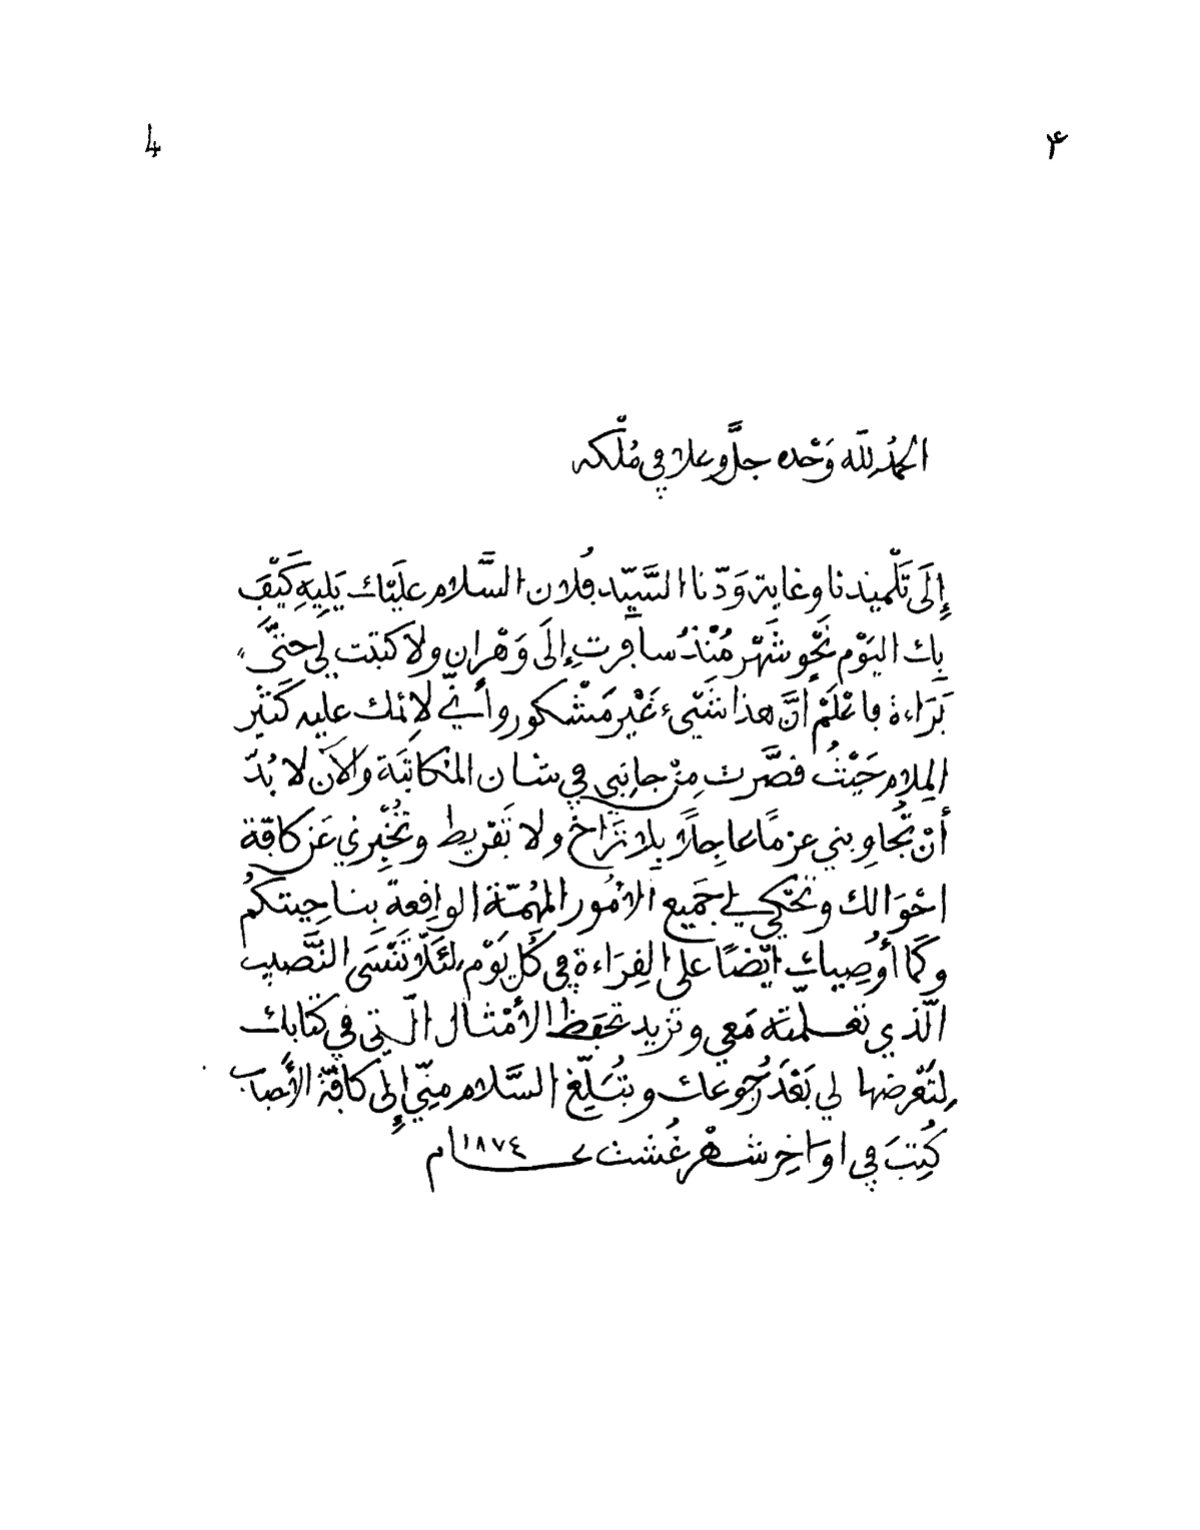 4 ۴
الحمدُ لله وَحْده جلَّ وعلا في مُلْكه
إِلَى تَلْميذنا وغاية وَدّنا السَّيِّد فُلان السَّلام علَيْك يَلِيهِ كَيْفَ
بِك اليَوْم نَحْو شَهْر مُنْذُ سافرت إِلَى وَهْران ولا كتبت لي حتَّى
بَرَاءة فاعْلَمْ أنَّ هذا شيْء غَيْر مَشْكور وأنّي لائمك عليه كَثير
الملام حَيْثُ قصَّرت مِنْ جانبي في شان المُكاتَبَة والآن لا بُدّ
أنْ تُجاوبني عزمًا عاجلًا بلا تَرَاخ ولا تَفْريط وتُخْبِرني عَن كافّة
احْوَالك وتحْكي لي جَميع الأمُور المُهمّة الواقعة بنَاحِيتكُم
وكَما أُوصِيك ايْضًا على القِرَاءة في كُلّ يَوْم لئَلّا تَنْسَى النَّصيب
الّذي تعلمته مَعي وتزيد تحفظ الأمْثال الّتي في كتابك
لِتَعْرضها لي بَعْدَ رُجوعك وتُبَلِّغ السَّلام منِّي إِلَى كافّة الأَصحاب
كُتِبَ في اوَاخِر شهْر غُشت عام ١٨٧٤